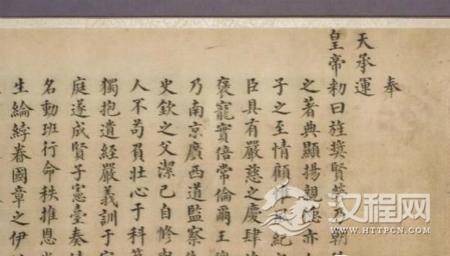 奉
天承運
皇帝勅曰旌奬賢英乃朝
之著典顯揚想德亦人
子之至情顧惟紀
臣具有嚴慈之慶肆
褒寵實倍常倫爾王
乃南京廣西道監察
史欽之父潔己自修
人不苟負壯心于科
獨抱遺經嚴義訓于
庭遂成賢子憲臺奏
名動班行命秩推恩
生綸綍眷國章之伊
汉程网
WWW.HTTPCN.COM